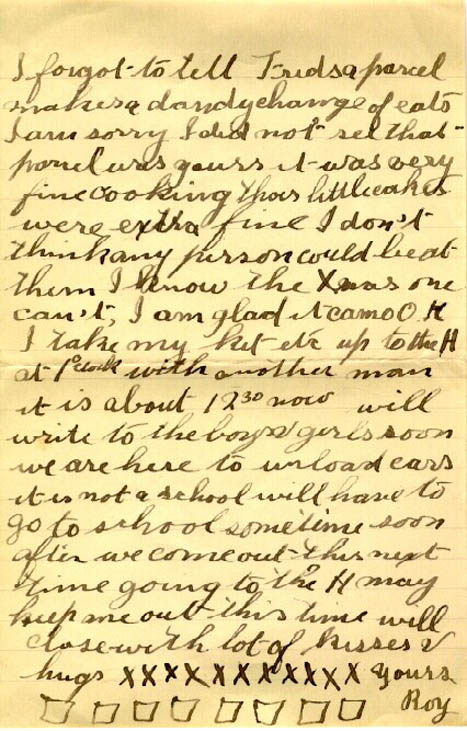 I forgot to tell Frids a parcel
makes a dandy change of eats
I am sorry I did not sel that
parcel was yours it was very
fine cooking thoes little cakes
were extra fine I don't
think any person could beat
them I know the Xmas one
can't, I am glad it came O.K
I take my ket etc up to the H
at 1 o'clock with another man
it is about 12 30 now will
write to the boys & girls soon
we are here to unload cars
it is not a school will have to
go to school sometime soon
after we come out this next
time going to the H may
keep me out this time will
close with lot of kisses &
hugs XXXXXXXXXXX Yours
Roy